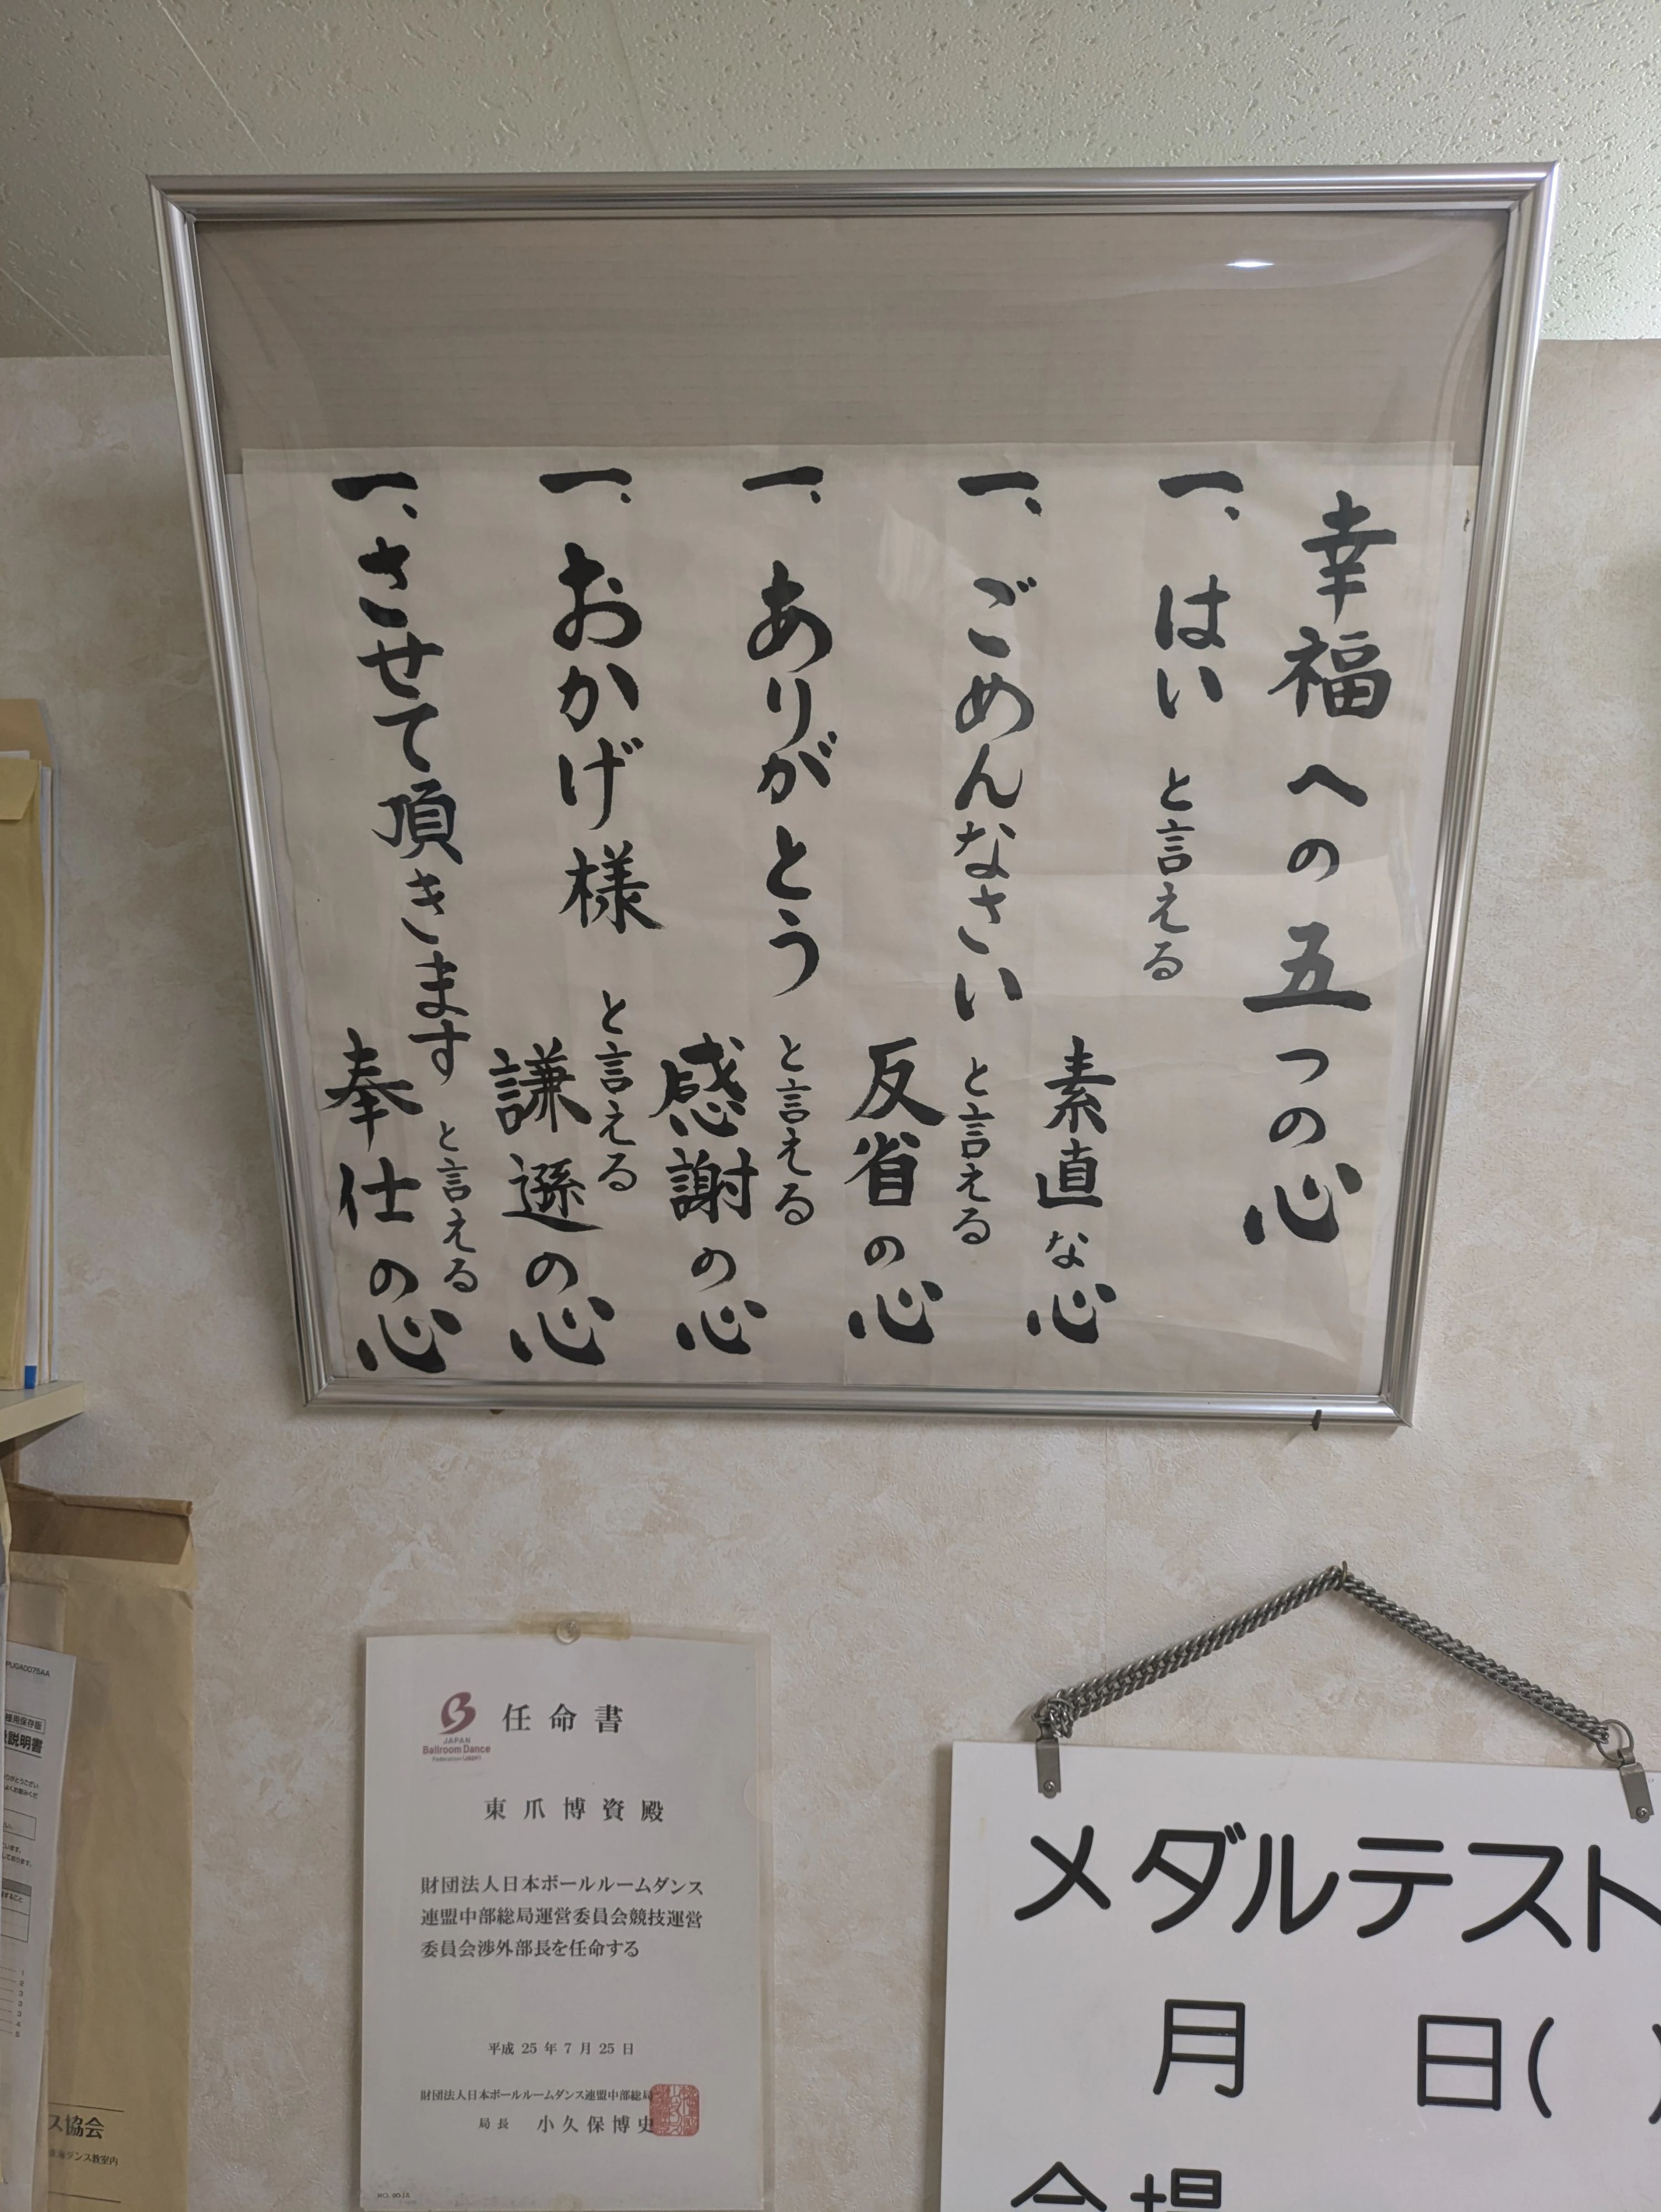 幸福への五つの心
一、はい と言える
素直な心
一、ごめんなさい と言える
反省の心
一、ありがとう と言える
感謝の心
一、おかげ様 と言える
謙遜の心
一、させて頂きます と言える
奉仕の心
JAPAN
Ballroom Dance
任命書
東爪博資殿
財団法人日本ボールルームダンス
連盟中部総局運営委員会競技運営
委員会渉外部長を任命する
平成 25 年 7 月 25 日
財団法人日本ボールルームダンス連盟中部総局
局長 小久保博史
メダルテスト
月 日( )
会場
説明書
ス協会
ダンス教室内